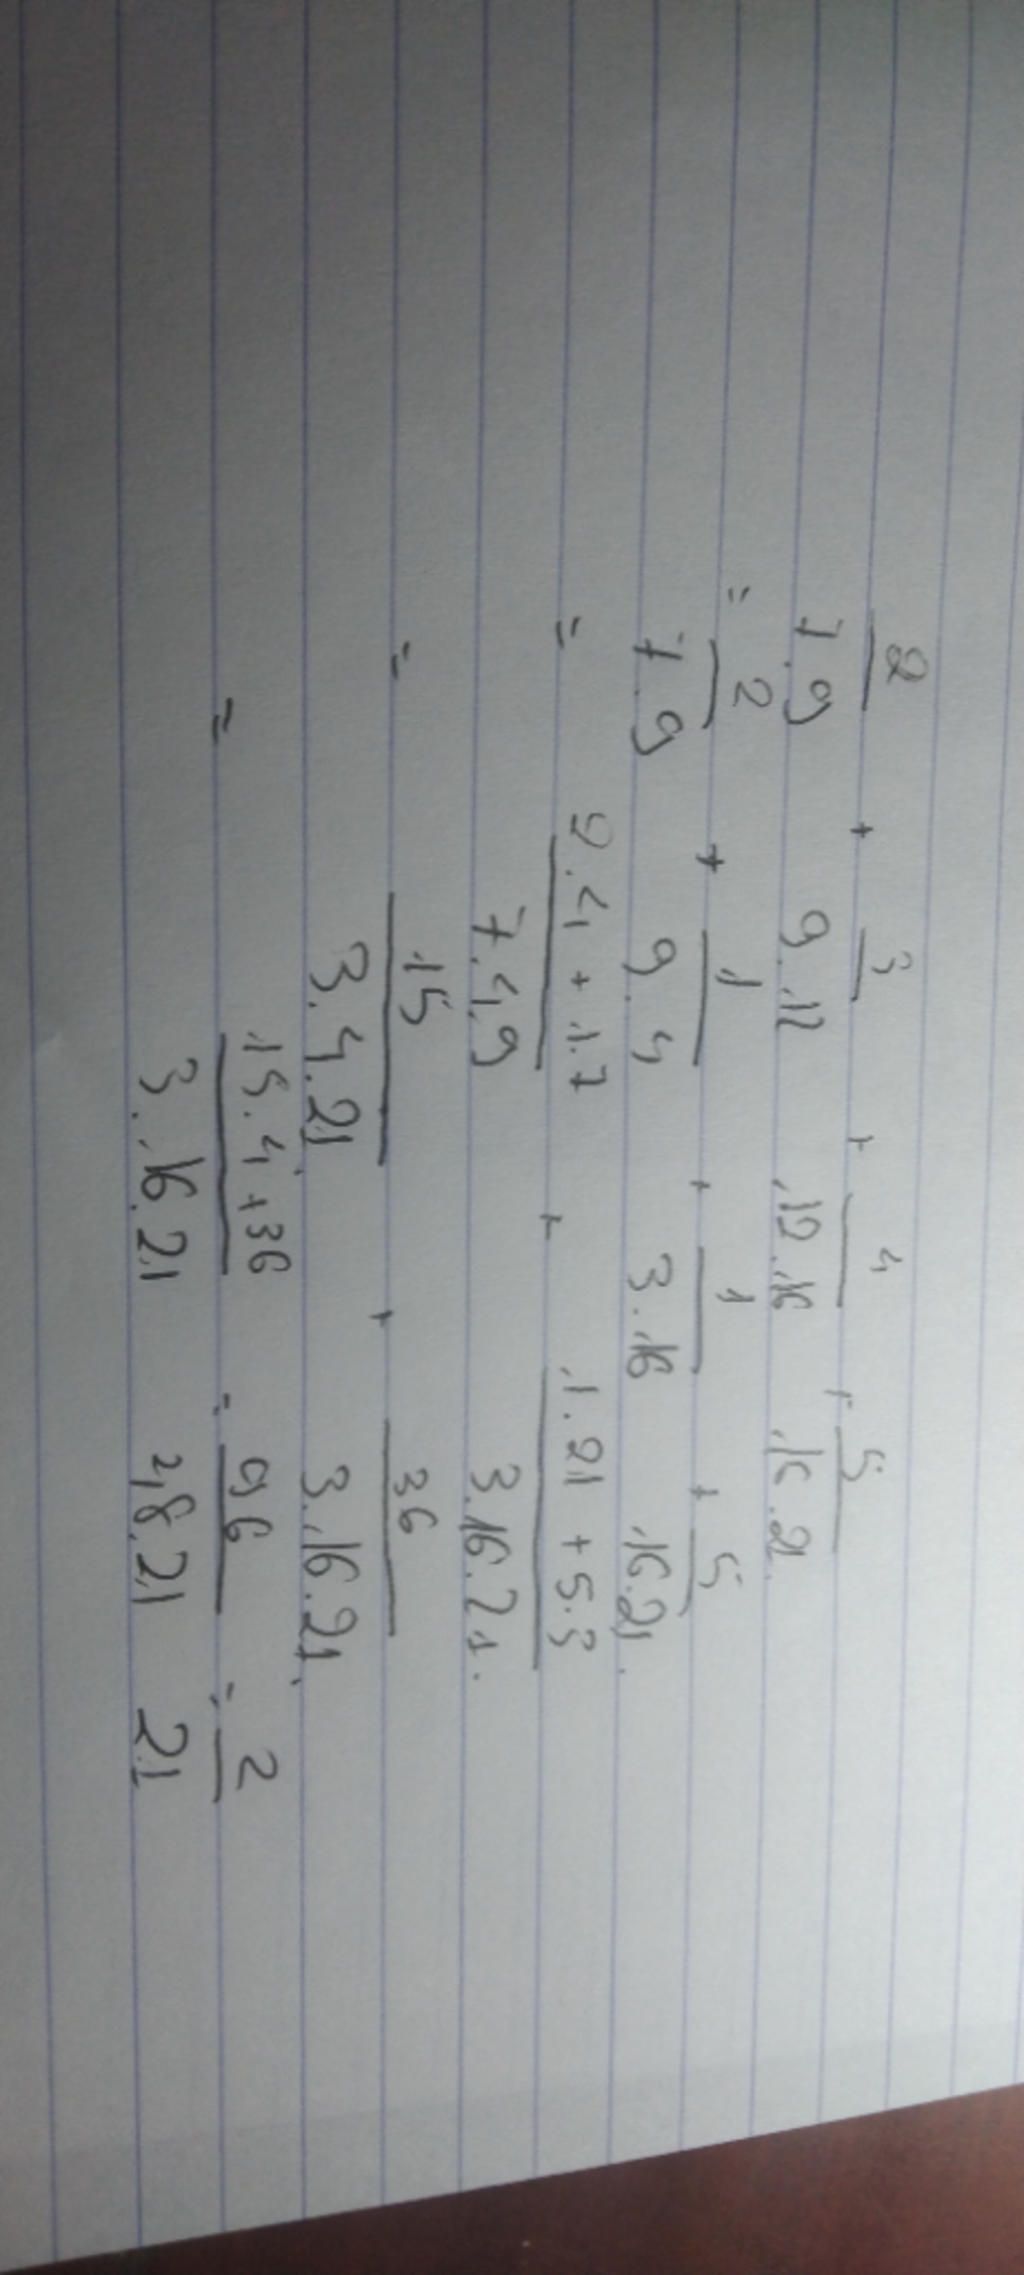 2/7.9 + 3/9.12 + 4/12.16 + 5/16.21
= 2/7.9 + 1/9.4 + 1/3.16 + 5/16.21
= 2.4 + 1.7/7.4.9 + 1.21 + 5.3/3.16.21
= 15/3.4.21 + 36/3.16.21
= 15.4 + 36/3.16.21 = 96/48.21 = 2/21